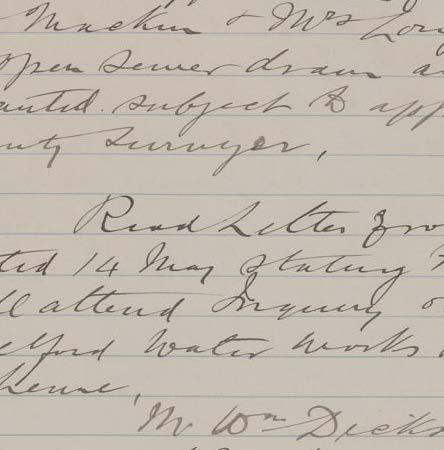 Mackin & Mrs Lou
open sewer drain a
anted subject to app
unty Surveyor,
Read Letter fro
ted 14 May stating
ll attend Inquiry o
elford Water Works
house,
Mr Wm Dicks